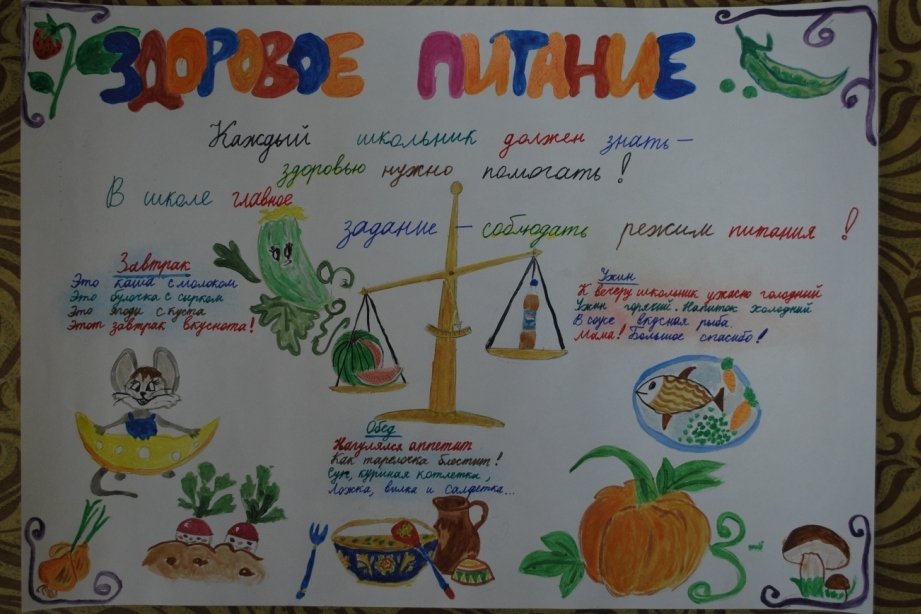 ЗДОРОВОЕ ПИТАНИЕ
Каждый школьник должен знать –
здоровью нужно помогать!
В школе главное
задание – соблюдать режим питания!
Завтрак
Это каша с молоком
Это булочка с сырком
Это ягоди с куста
Этот завтрак вкуснота!
Ужин
К вечеру школьник ужасно голодний
Ужин горячий. Напиток холодний
В соусе вкусная рыба.
Мама! Большое спасибо!
Обед
Нагулялся аппетит
Как тарелочка блестит!
Суп, куриная котлетка,
Ложка, вилка и салфетка...